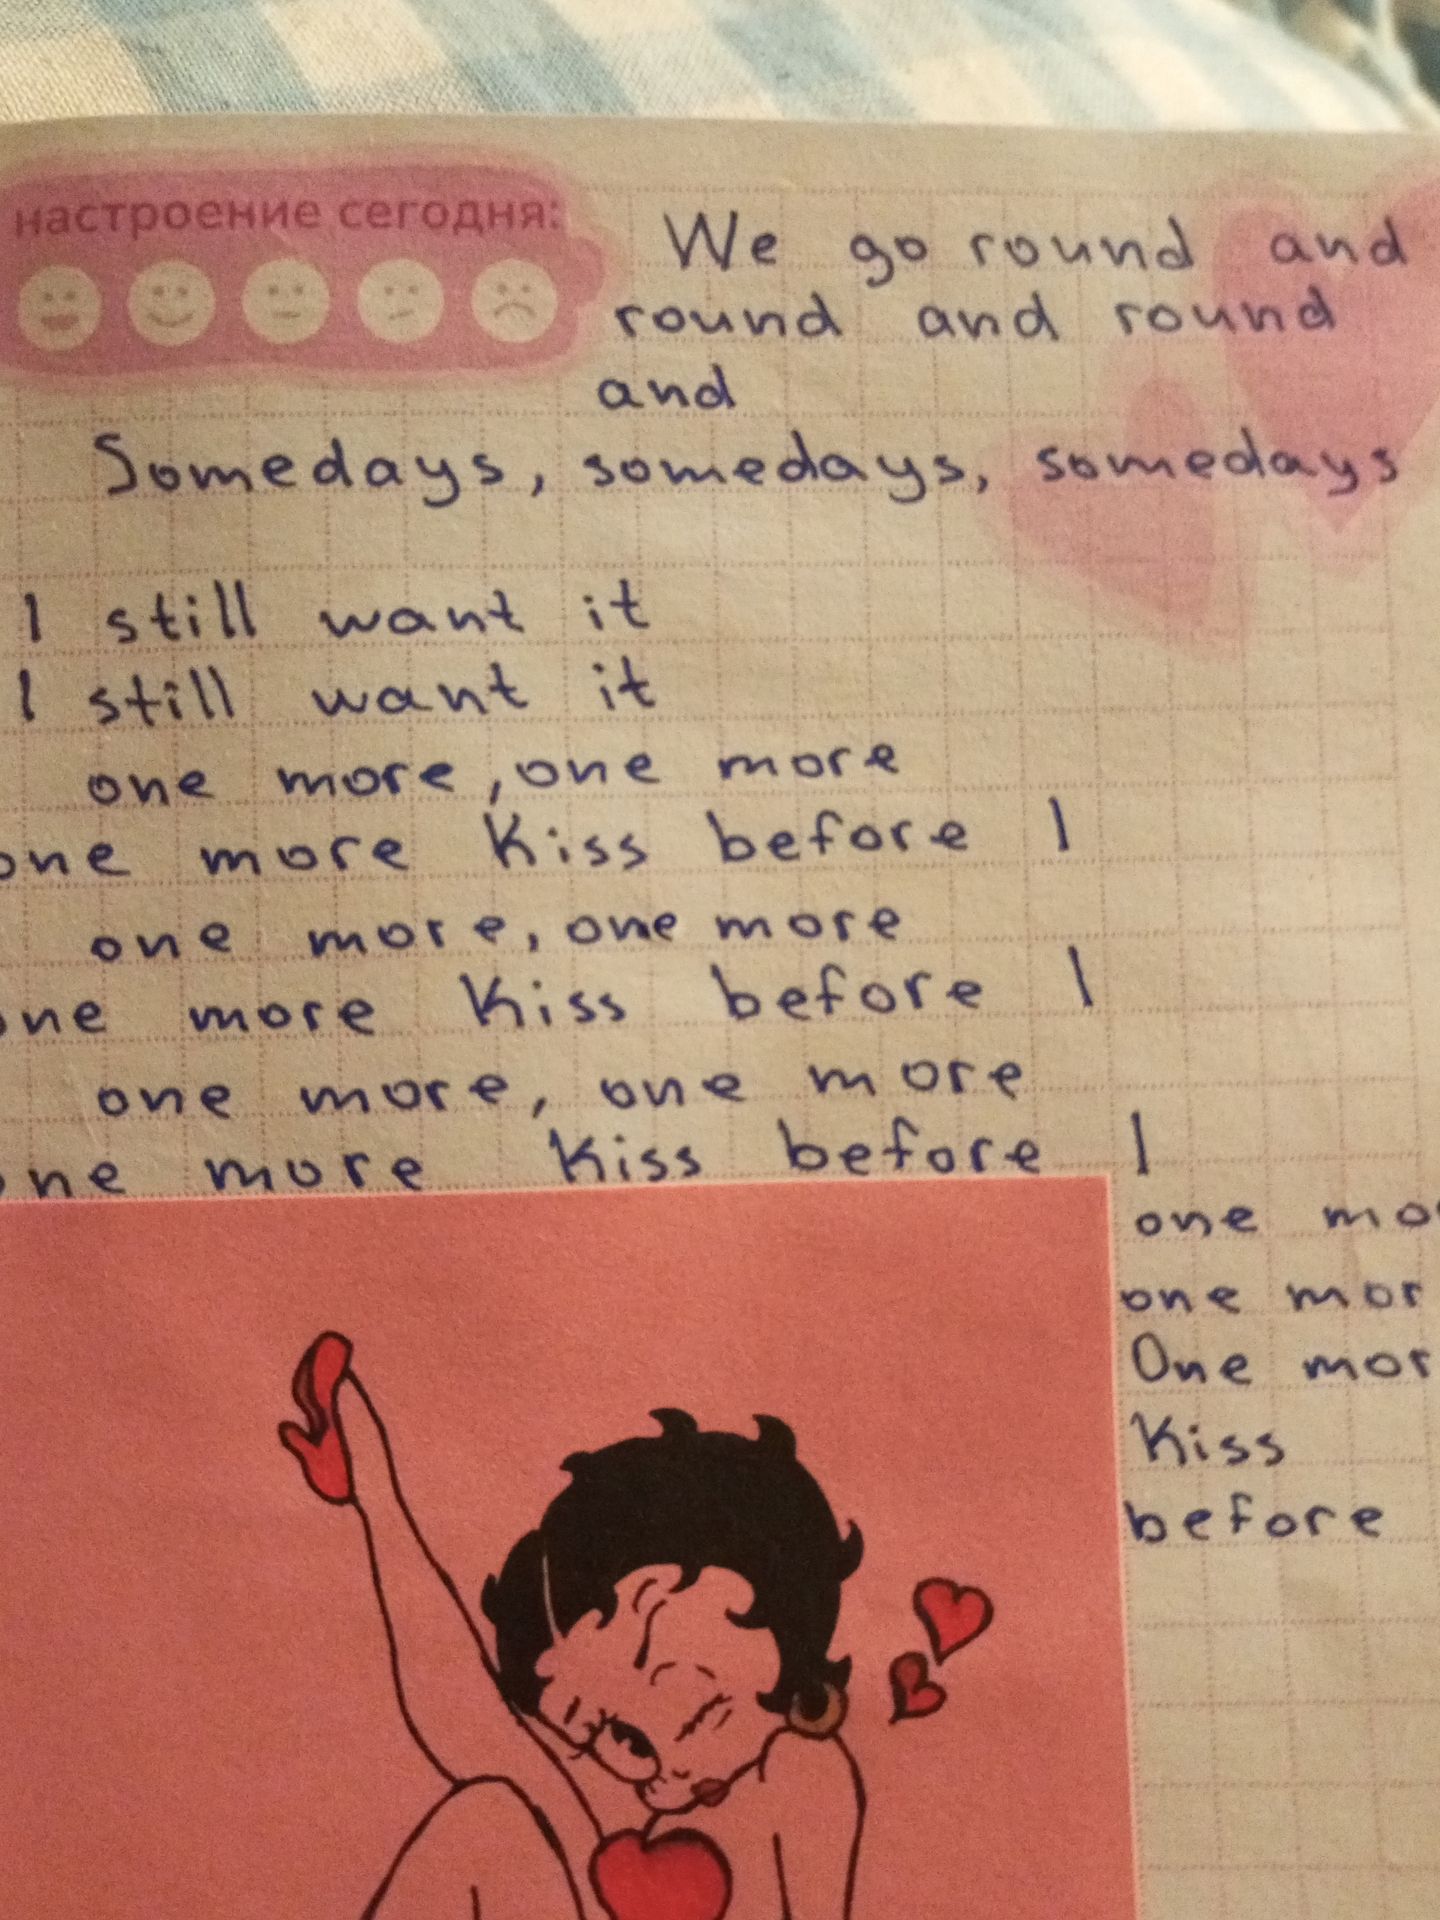 настроение сегодня:
We go round and
round and round
and
Somedays, somedays, somedays
I still want it
I still want it
one more, one more
one more Kiss before I
one more, one more
one more Kiss before I
one more, one more
one more Kiss before I
one mo
one mor
One mor
Kiss
before